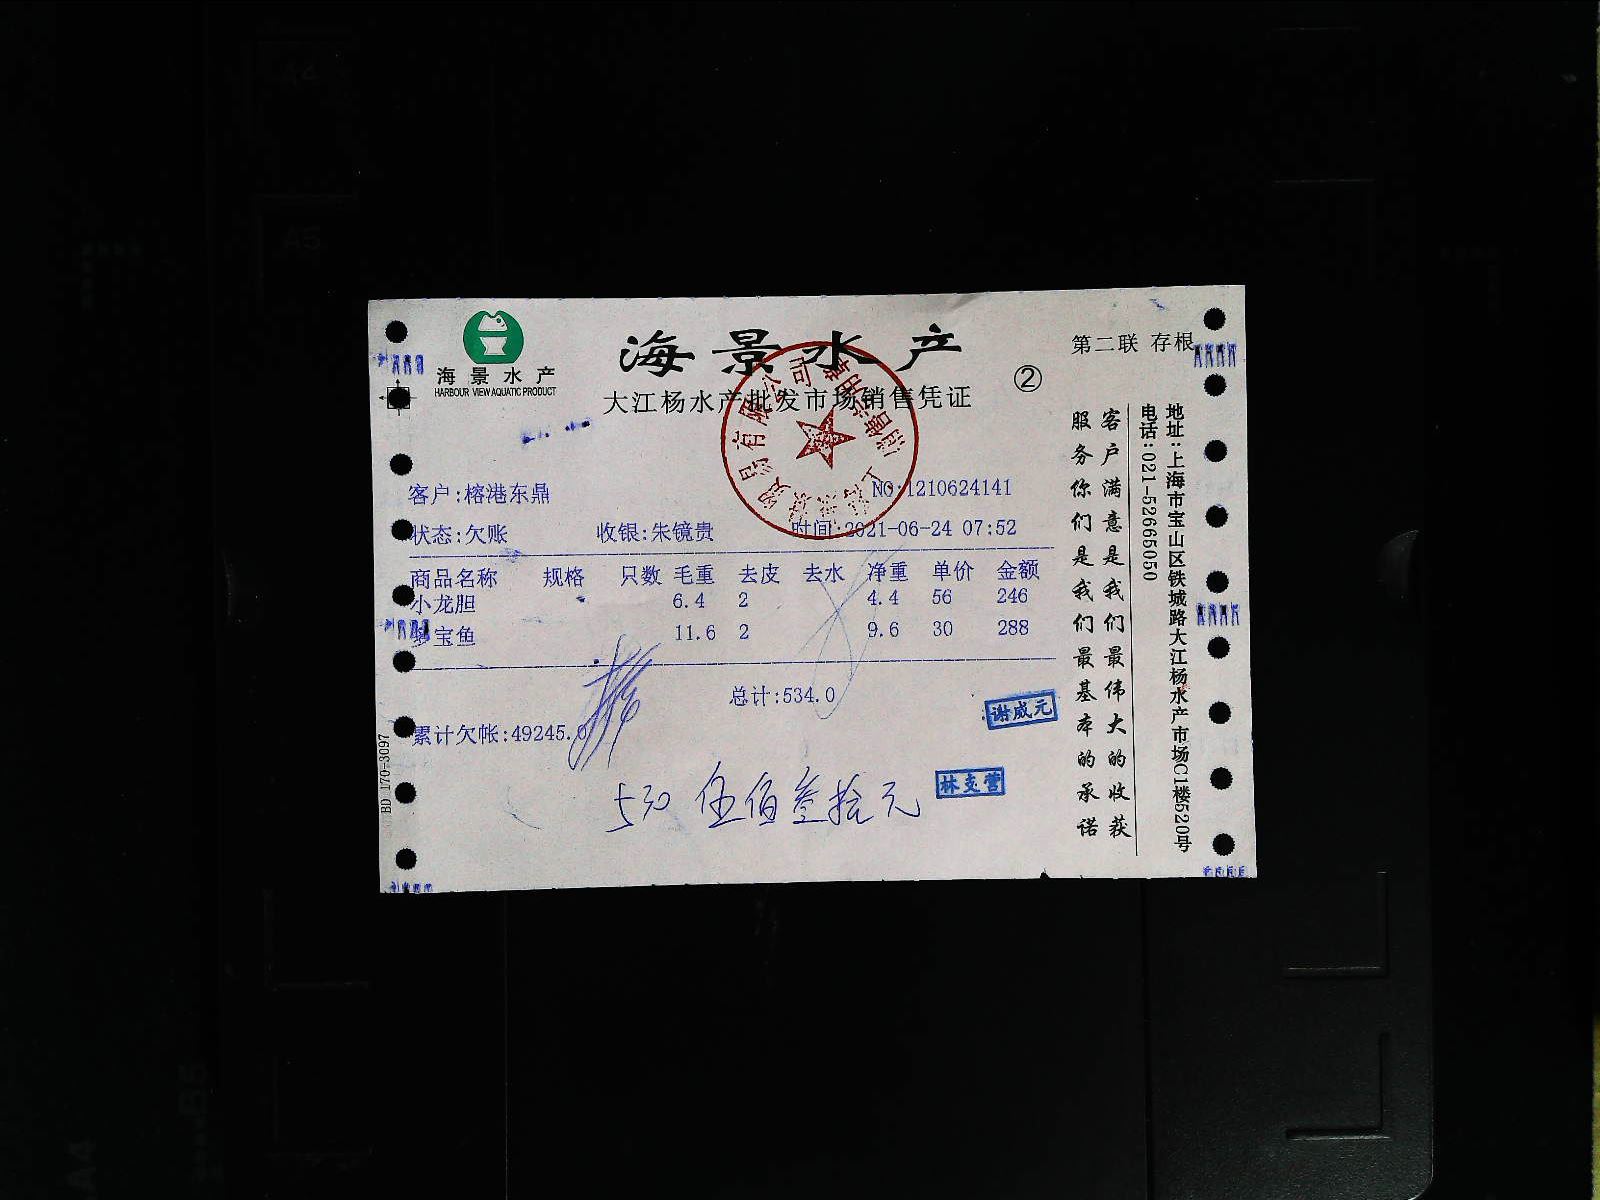 海景水产
HARBOUR VIEW AQUATIC PRODUCT
海景水产
大江杨水产批发市场销售凭证
②
第二联 存根
客户:榕港东鼎
NO:1210624141
状态:欠账 收银:朱镜贵 时间:2021-06-24 07:52
商品名称 规格 只数 毛重 去皮 去水 净重 单价 金额
小龙胆 6.4 2 4.4 56 246
多宝鱼 11.6 2 9.6 30 288
总计:534.0
累计欠帐:49245.0
谢威元
林支营
530 伍佰叁拾元
客户满意是我们最伟大的收获
服务你们是我们最基本的承诺
地址:上海市宝山区铁城路大江杨水产市场C1楼520号
电话:021-52665050
BD 170-3097
A4
A5
B5
A4